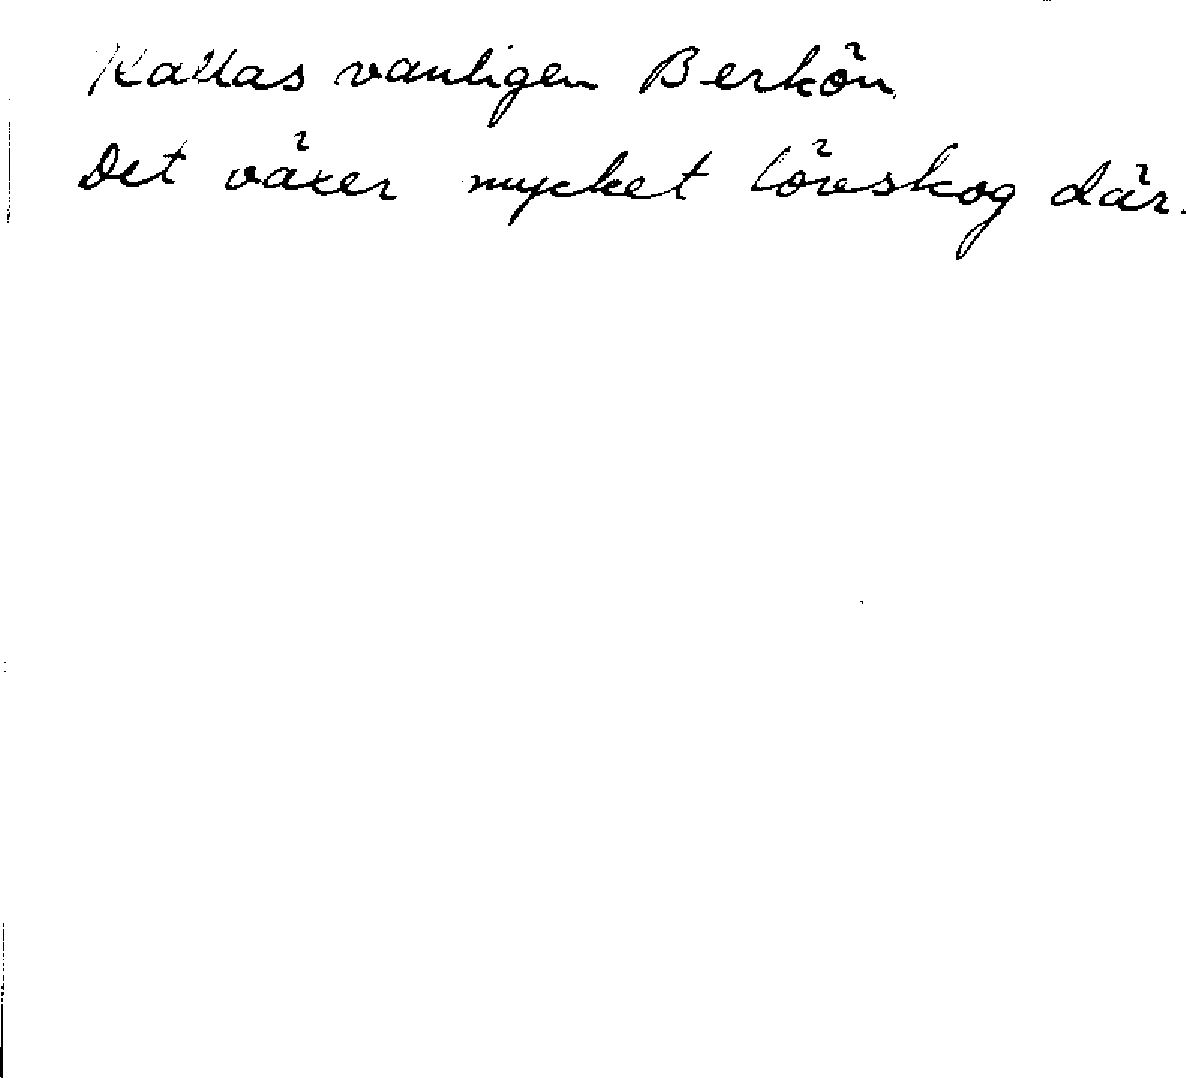 Kallas vanligen Berkön
Det växer mycket lövskog där.